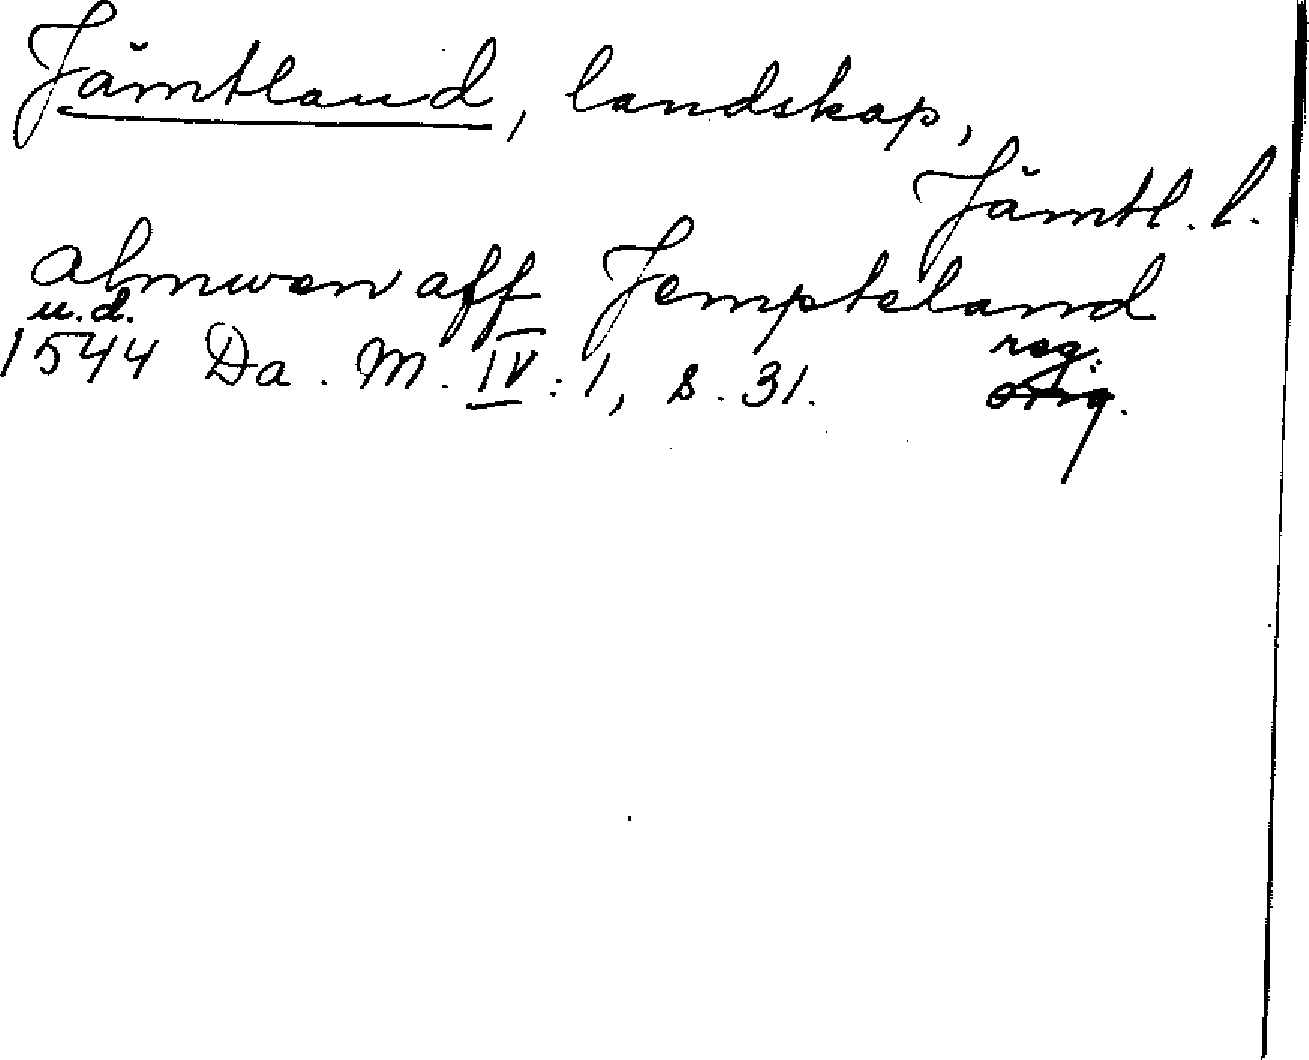 Jämtland, landskap,
Jämtl. l.
almwen aff Jempteland
u.d.
1544 Da. M. IV: 1, s. 31. reg.
orig.